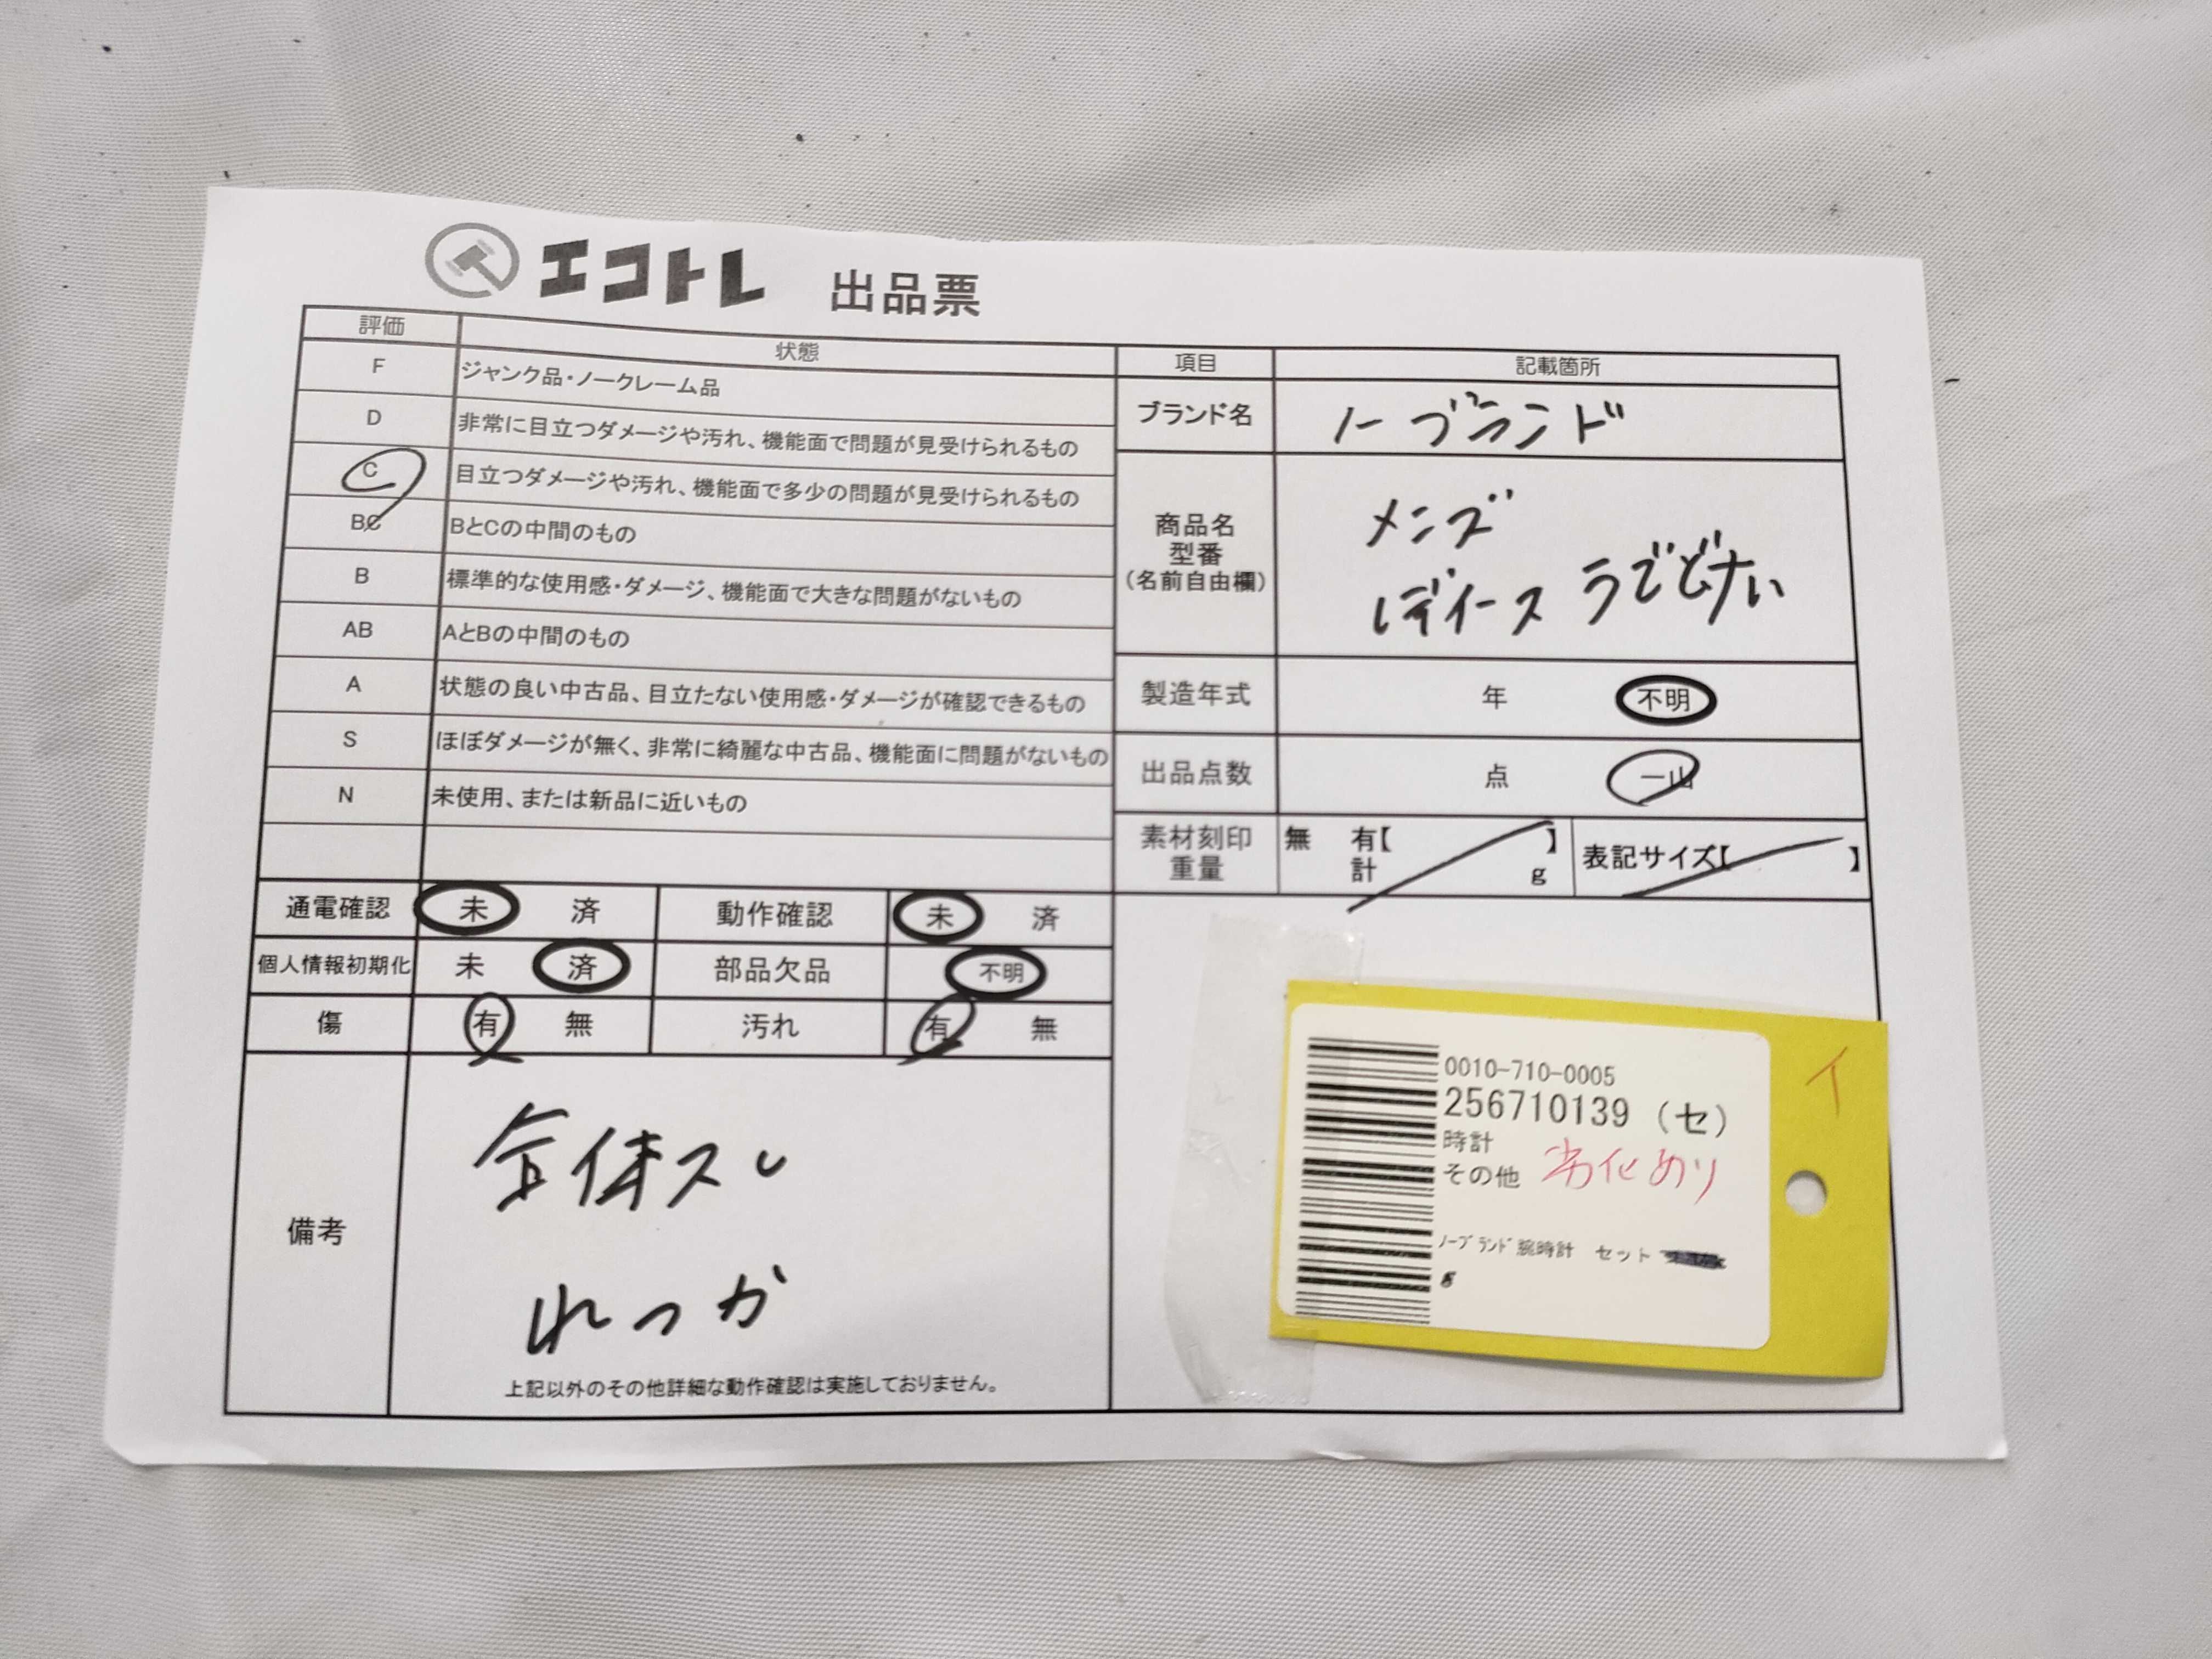 エコトレ 出品票
評価 状態
F ジャンク品・ノークレーム品
D 非常に目立つダメージや汚れ、機能面で問題が見受けられるもの
C 目立つダメージや汚れ、機能面で多少の問題が見受けられるもの
BC BとCの中間のもの
B 標準的な使用感・ダメージ、機能面で大きな問題がないもの
AB AとBの中間のもの
A 状態の良い中古品、目立たない使用感・ダメージが確認できるもの
S ほぼダメージが無く、非常に綺麗な中古品、機能面に問題がないもの
N 未使用、または新品に近いもの
項目 記載箇所
ブランド名 ノーブランド
商品名
型番
(名前自由欄)
メンズ
レディース うでどけい
製造年式 年 不明
出品点数 点 一山
素材刻印 無 有【 】
重量 計 g
表記サイズ【 】
通電確認 未 済 動作確認 未 済
個人情報初期化 未 済 部品欠品 不明
傷 有 無 汚れ 有 無
備考
全体スレ
れっか
上記以外のその他詳細な動作確認は実施しておりません。
イ
0010-710-0005
256710139 (セ)
時計
その他 劣化あり
ノーブランド腕時計 セット